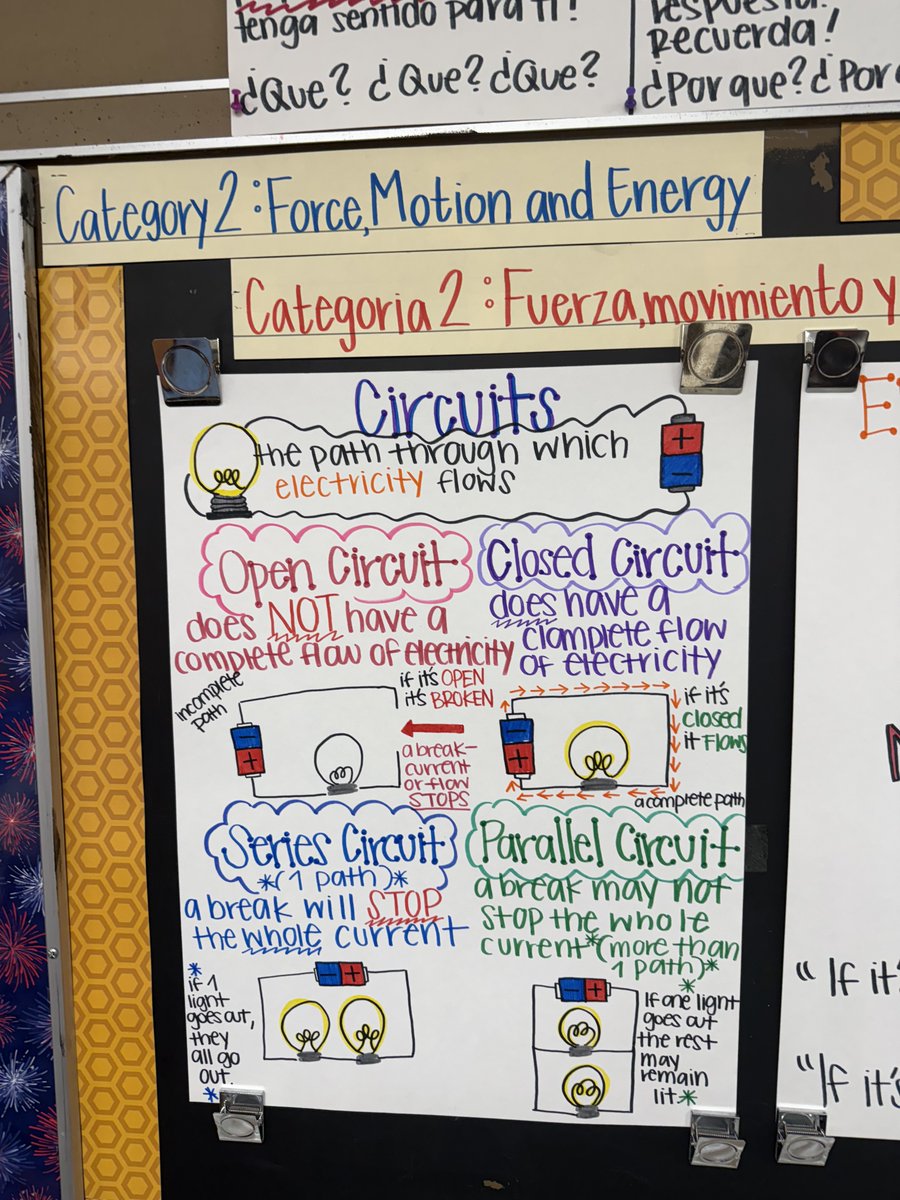 tenga sentido para ti!
¿Que? ¿Que? ¿Que?
Recuerda!
¿Por que? ¿Por
Category 2: Force, Motion and Energy
Categoria 2: Fuerza, movimiento y
Circuits
the path through which
electricity flows
+
-
Open Circuit
does NOT have a
complete flow of electricity
incomplete
path
if it's OPEN
it's BROKEN
-
+
a break-
current
or flow
STOPS
Closed Circuit
does have a
clomplete flow
of electricity
-
+
if it's
closed
it Flows
a complete path
Series Circuit
*(1 path)*
a break will STOP
the whole current
*
if 1
light
goes out,
they
all go
out.
*
- +
Parallel Circuit
a break may not
stop the whole
current *(more than
1 path)*
- +
*
If one light
goes out
the rest
may
remain
lit.*
"If it's
"If it's